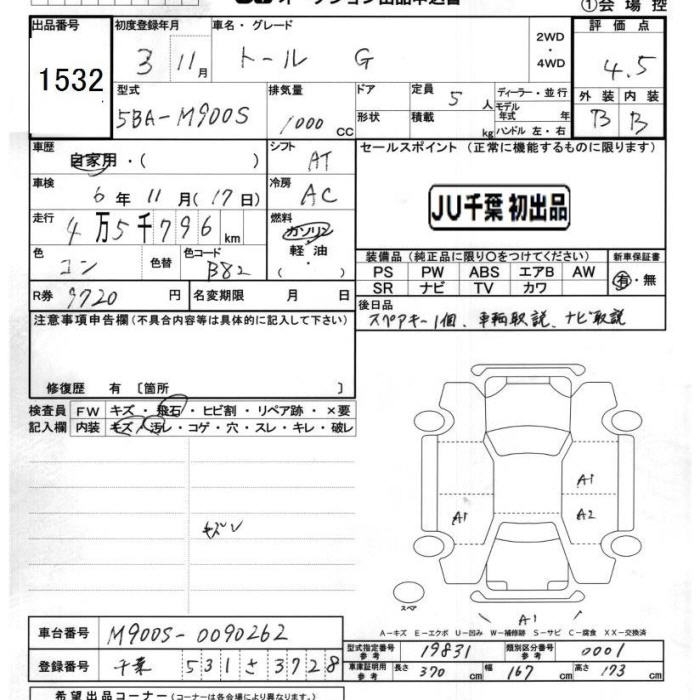 ①会場控
出品番号 1532
初度登録年月 3 11月
車名・グレード トール G
2WD・4WD
評価点 4.5
型式 5BA-M900S
排気量 1000 CC
ドア
形状
定員 5 人
積載 kg
ディーラー・並行
モデル年式 年
ハンドル 左・右
外装 B 内装 B
車歴 自家用・( )
シフト AT
セールスポイント (正常に機能するものに限ります)
車検 6年11月(17日)
冷房 AC
JU千葉 初出品
走行 4万5千796km
燃料 ガソリン 軽油 ( ・ )
色 コン
色替
色コード B82
装備品 (純正品に限り○をつけてください)
PS PW ABS エアB AW
SR ナビ TV カワ
新車保証書 有・無
R券 9720 円
名変期限 月 日
後日品
スペアキー1個、車輌取説、ナビ取説
注意事項申告欄 (不具合内容等は具体的に記入して下さい)
修復歴 有 〔箇所 〕
検査員 FW キズ・飛石・ヒビ割・リペア跡・×要
記入欄 内装 キズ・汚レ・コゲ・穴・スレ・キレ・破レ
A1
A1 A2
スペア
A1
A-キズ E-エクボ U-凹み W-補修跡 S-サビ C-腐食 XX-交換済
車台番号 M900S-0090262
型式指定番号 参考 19831
類別区分番号 参考 0001
登録番号 千葉 531 さ 3728
車庫証明用 参考 長さ 370 cm 幅 167 cm 高さ 173 cm
希望出品コーナー (コーナーは各会場により異なります。)